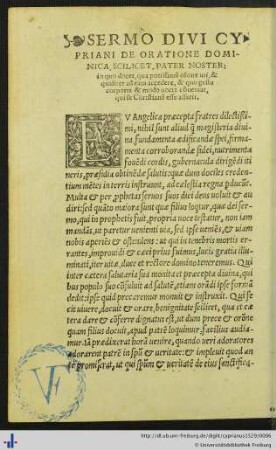 SERMO DIVI CY
PRIANI DE ORATIONE DOMI-
NICA, SCILICET, PATER NOSTER:
in quo docet, qua potissimũ
accedere, & quo gestu
corporis & modo
qui se Christianũ esse
EVAngelica præcepta fratres dilectissi-
mi, nihil sunt aliud q̃ magisteria divi-
na, fundamenta ædificandæ spei, firma-
menta corroborandæ fidei, nutrimenta
fovẽdi cordis, gubernacula dirigẽdi iti
neris, præsidia obtinẽdæ salutis: quæ dum dociles creden-
tium mẽtes in terris instruunt, ad cælestia regna pducũt.
Multa & per pphetas servos suos dici deus voluit & au
diri: sed quãto maiora sunt quæ filius loquitur, quæ dei ser-
mo, qui in prophetis fuit, propria voce testatur, non iam
mandãs, ut paretur venienti via, sed ipse veniẽs, & viam
nobis aperiẽs & ostendens: ut qui in tenebris mortis er-
rantes, improvidi & cæci prius fuimus, luce gratiæ illumi-
nati, iter vitæ, duce et rectore domino teneremus. Qui
inter cætera salutaria sua monita et præcepta divina, qui
bus populo suo cõsuluit ad salutẽ, etiam orãdi ipse formã
dedit: ipse quid precaremur monuit & instruxit. Qui fe
cit vivere, docuit & orare, benignitate scilicet, qua et cæ
tera dare et cõferre dignatus est, ut dum prece & oratiõe
quam filius docuit, apud patrẽ loquimur, facilius audia-
mur. Iã prædixerat horã venire, quando veri adoratores
adorarent patrẽ in spũ & veritate: & implevit quod an
te promiserat, ut qui spũm & veritatẽ de eius sanctifica-
VF
http://dl.ub.uni-freiburg.de/diglit/cyprianus1529/0006
© Universitätsbibliothek Freiburg